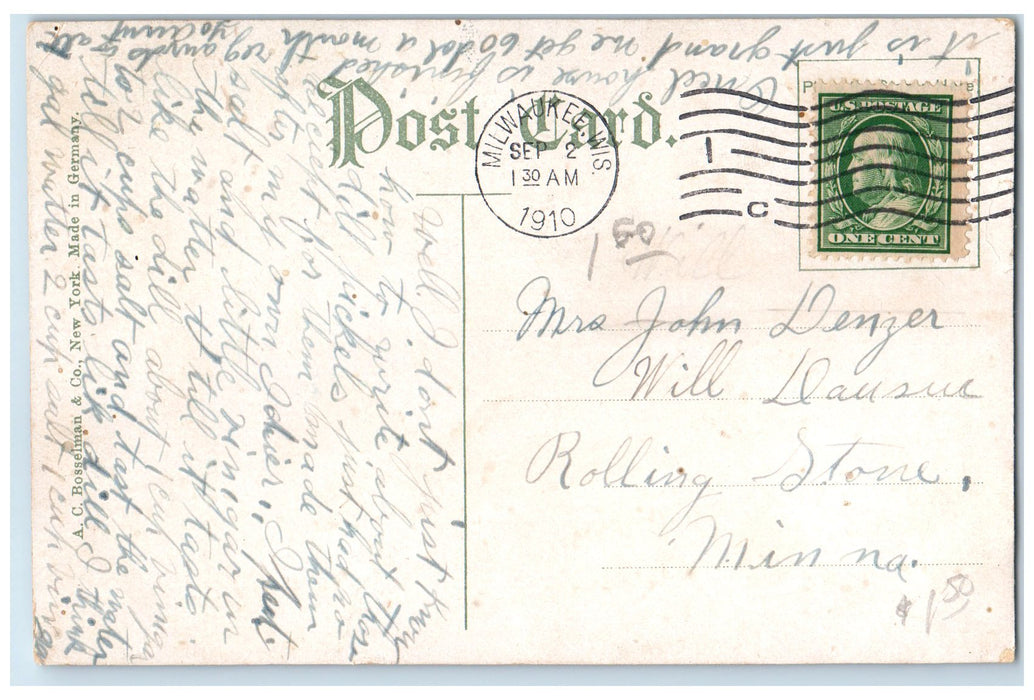 Post Card.
MILWAUKEE, WIS.
SEP 2
1 30 AM
1910
U.S. POSTAGE
ONE CENT
1 50
Mrs John Denzer
Will
Rolling Stone,
Minna.
$1 50
A. C. Bosselman & Co., New York. Made in Germany.
Well I dont just know
how to write about those
dill pickels just had no
reciept for them made them
after my own Idhier, I put
salt and little vinigar in
the watter till it tasts
like the dill about 1 cup vinigar
to 2 cups salt and tast the water
tell it tasts like dill I think
1 gal watter 2 cup salt 1 cup vinigar
house is finished
it is just grand we get 60 dol a month
regards to
all